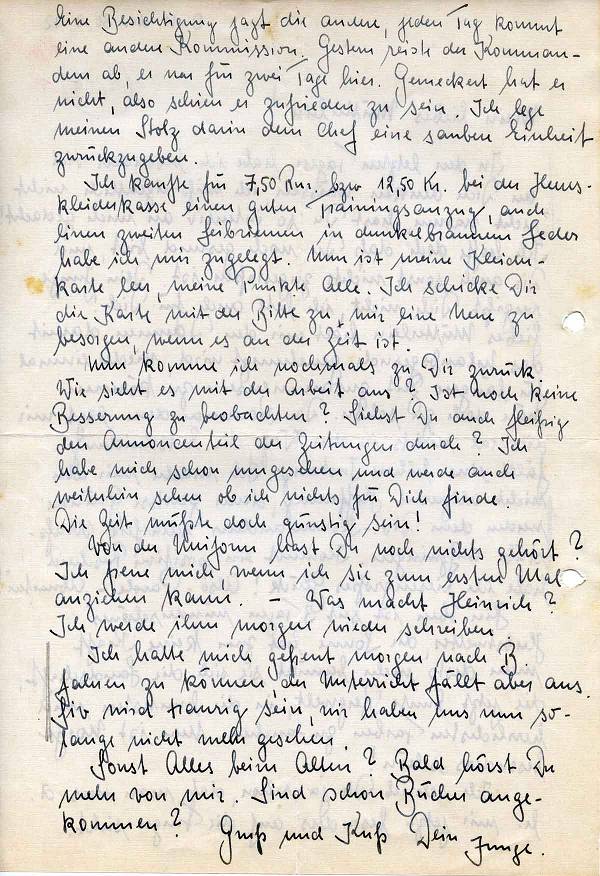 Eine Besichtigung jagt die andere, jeden Tag kommt
eine andere Kommission. Gestern reiste der Komman-
deur ab, er war für zwei Tage hier. Gemeckert hat er
nicht, also schien er zufrieden zu sein. Ich lege
meinen Stolz darin dem Chef eine saubere Einheit
zurückzugeben.
Ich kaufte für 7,50 Rm. bzw 12,50 Kr. bei der Heeres-
kleiderkasse einen guten Trainingsanzug, auch
einen zweiten Leibriemen in dunkelbraunem Leder
habe ich mir zugelegt. Nun ist meine Kleider-
karte leer, meine Punkte alle. Ich schicke Dir
die Karte mit der Bitte zu, mir eine Neue zu
besorgen, wenn es an der Zeit ist.
Nun komme ich nochmals zu Dir zurück.
Wie sieht es mit der Arbeit aus? Ist noch keine
Besserung zu beobachten? Siehst Du auch fleißig
den Annoncenteil der Zeitungen durch? Ich
habe mich schon umgesehen und werde auch
weiterhin sehen ob ich nichts für Dich finde.
Die Zeit müßte doch günstig sein!
Von der Uniform hast Du noch nichts gehört?
Ich freue mich wenn ich sie zum ersten Mal
anziehen kann. – Was macht Heinrich?
Ich werde ihm morgen wieder schreiben.
Ich hatte mich gefreut morgen nach B.
fahren zu können, der Unterricht fällt aber aus.
wird traurig sein, wir haben uns nun so-
lange nicht mehr gesehen.
Sonst Alles beim Alten? Bald hörst Du
mehr von mir. Sind schon Bücher ange-
kommen?
Gruß und Kuß Dein Junge.